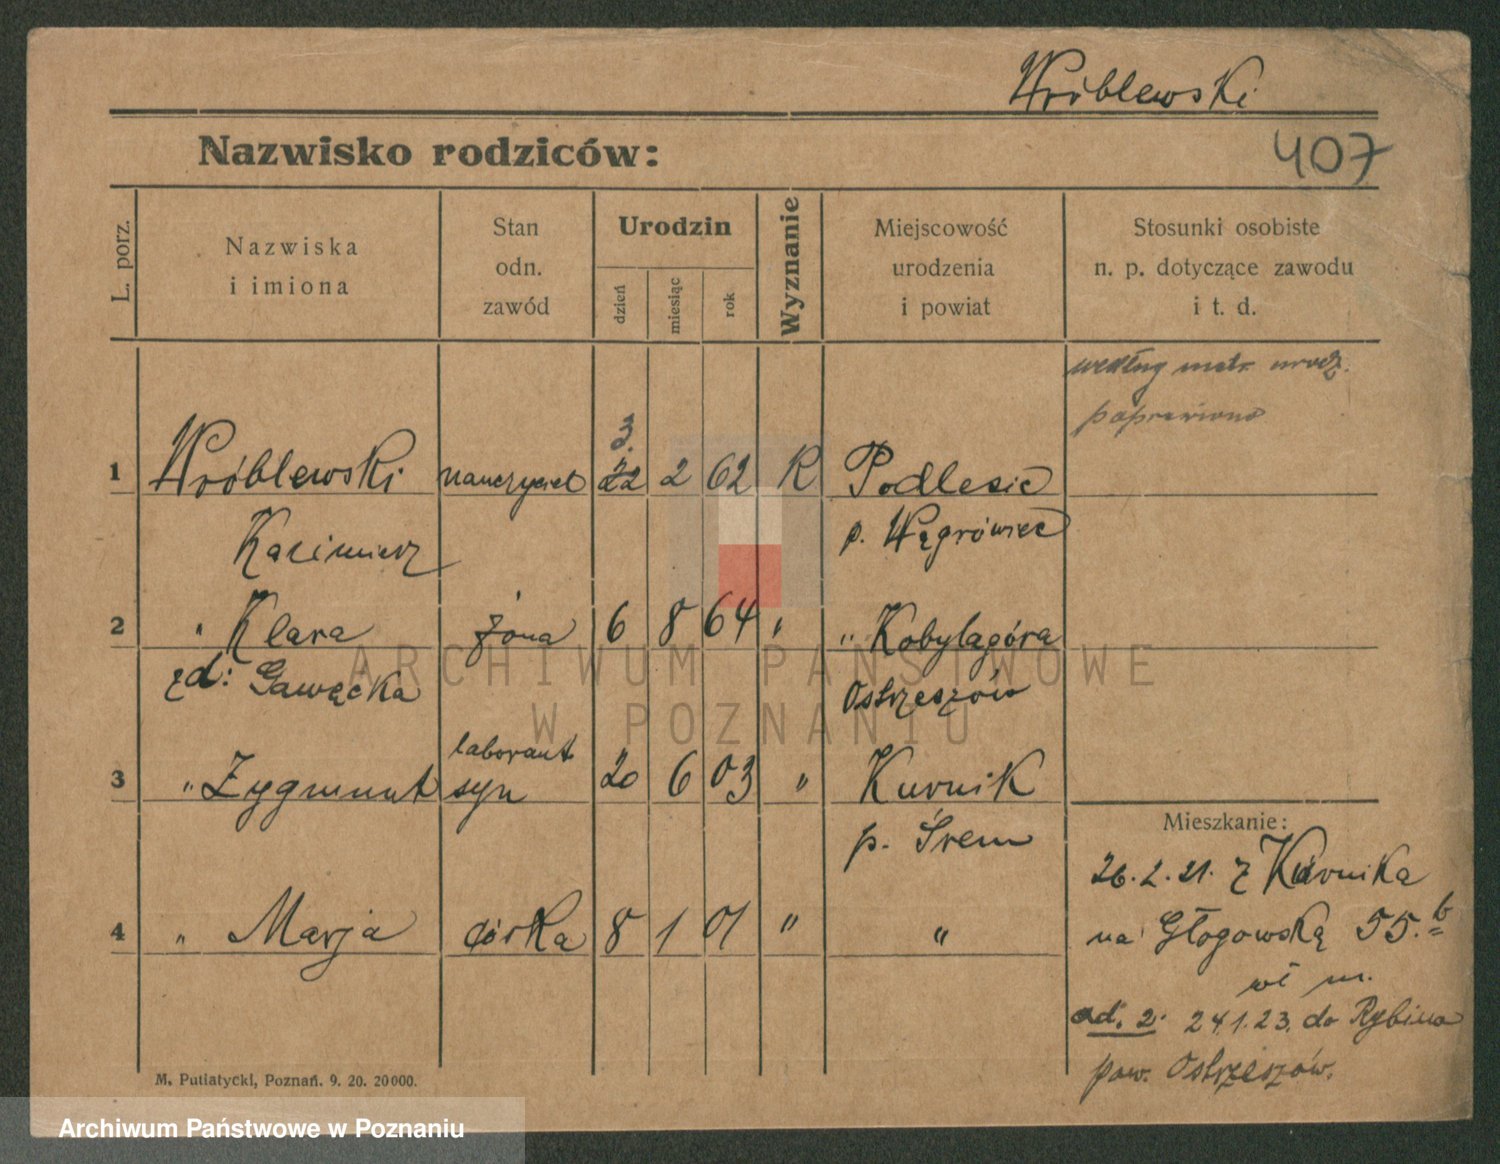 Wróblewski
Nazwisko rodziców:
407
L. porz.
Nazwiska
i imiona
Stan
odn.
zawód
Urodzin
dzień
miesiąc
rok
Wyznanie
Miejscowość
urodzenia
i powiat
Stosunki osobiste
n. p. dotyczące zawodu
i t. d.
według metr. urodz.
poprawiono
2.
1 Wróblewski nauczyciel 22 2 62 K Podlesie
Kazimierz p. Wągrówiec
2 " Klara żona 6 8 64 " " Kobylagóra
zd: Gawęcka Ostrzeszów
laborant
3 " Zygmunt syn 20 6 03 " Kurnik
p. Śrem
Mieszkanie:
26.2.21. z Kurnika
4 " Marja córka 8 1 01 " "
na Głogowską 55.b
wł m.
ad. 2. 24.1.23. do Rybina
pow. Ostrzeszów.
M. Putiatycki, Poznań. 9. 20. 20000.
ARCHIWUM PAŃSTWOWE
W POZNANIU
Archiwum Państwowe w Poznaniu